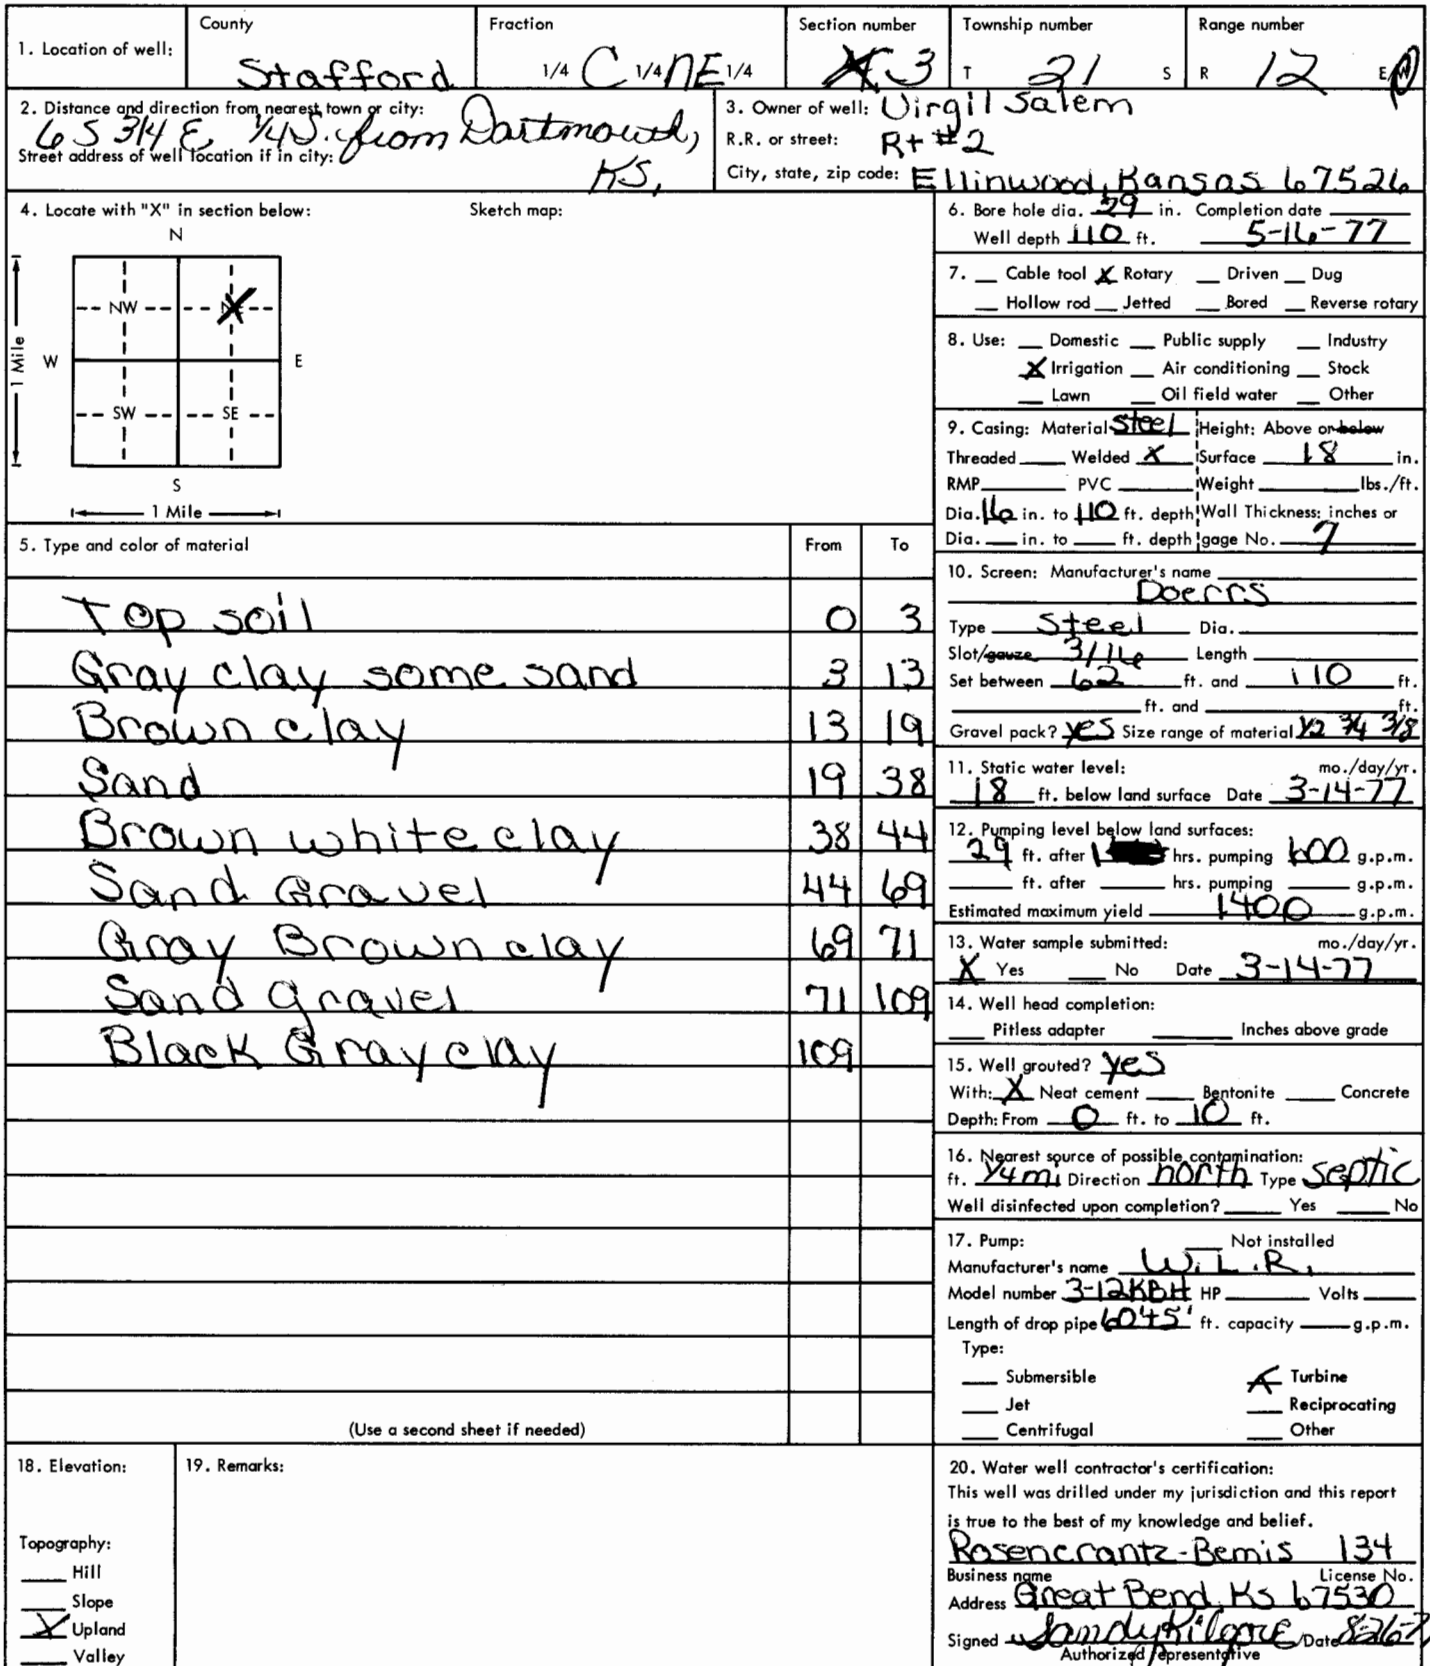 1. Location of well:
County
Stafford
Fraction
1/4 C 1/4 NE 1/4
Section number
3
Township number
T 21 S
Range number
R 12 E/W
2. Distance and direction from nearest town or city:
6 S 3/4 E, 1/4 S. from Dartmouth,
Street address of well location if in city:
KS,
3. Owner of well: Virgil Salem
R.R. or street: Rt #2
City, state, zip code: Ellinwood, Kansas 67526
4. Locate with "X" in section below:
Sketch map:
N
NW
W E
1 Mile
SW SE
S
1 Mile
5. Type and color of material From To
Top soil 0 3
Gray clay some sand 3 13
Brown clay 13 19
Sand 19 38
Brown white clay 38 44
Sand Gravel 44 69
Gray Brown clay 69 71
Sand gravel 71 109
Black Gray clay 109
(Use a second sheet if needed)
6. Bore hole dia. 29 in. Completion date
Well depth 110 ft. 5-16-77
7. Cable tool X Rotary Driven Dug
Hollow rod Jetted Bored Reverse rotary
8. Use: Domestic Public supply Industry
X Irrigation Air conditioning Stock
Lawn Oil field water Other
9. Casing: Material Steel Height: Above or below
Threaded Welded X Surface 18 in.
RMP PVC Weight lbs./ft.
Dia. 16 in. to 110 ft. depth Wall Thickness: inches or
Dia. in. to ft. depth gage No. 7
10. Screen: Manufacturer's name
Doerrs
Type Steel Dia.
Slot/gauze 3/16 Length
Set between 62 ft. and 110 ft.
ft. and ft.
Gravel pack? yes Size range of material 1/2 3/4 3/8
11. Static water level: mo./day/yr.
18 ft. below land surface Date 3-14-77
12. Pumping level below land surfaces:
29 ft. after 1 hrs. pumping 600 g.p.m.
ft. after hrs. pumping g.p.m.
Estimated maximum yield 1400 g.p.m.
13. Water sample submitted: mo./day/yr.
X Yes No Date 3-14-77
14. Well head completion:
Pitless adapter Inches above grade
15. Well grouted? yes
With: X Neat cement Bentonite Concrete
Depth: From 0 ft. to 10 ft.
16. Nearest source of possible contamination:
ft. 1/4 mi Direction north Type Septic
Well disinfected upon completion? Yes No
17. Pump: Not installed
Manufacturer's name W.L.R.
Model number 3-12KBH HP Volts
Length of drop pipe 60'+5' ft. capacity g.p.m.
Type:
Submersible X Turbine
Jet Reciprocating
Centrifugal Other
18. Elevation:
Topography:
Hill
Slope
X Upland
Valley
19. Remarks:
20. Water well contractor's certification:
This well was drilled under my jurisdiction and this report
is true to the best of my knowledge and belief.
Rosencrantz-Bemis 134
Business name License No.
Address Great Bend, Ks 67530
Signed Sandy Kilgore Date 8-26-7
Authorized representative